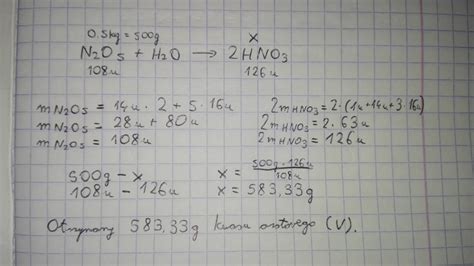 0.5kg = 500g x
N₂O₅ + H₂O → 2HNO₃
108u 126u
mN₂O₅ = 14u · 2 + 5 · 16u
mN₂O₅ = 28u + 80u
mN₂O₅ = 108u
2mHNO₃ = 2·(1u+14u+3·16u)
2mHNO₃ = 2 · 63u
2mHNO₃ = 126u
500g – x
108u – 126u
x = 500g · 126u / 108u
x = 583,33g
Otrzymamy 583,33g kwasu azotowego (V).